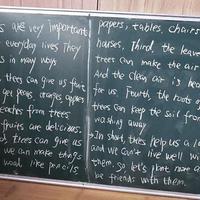 s are very important
everyday lives They
us in many ways
trees can give us fruit
get pears oranges apples
peaches from trees
fruits are delicious.
trees can give us
we can make things
wood like pencils
papers, tables, chairs
houses, Third, the leaves
trees can make the air
And the clean air is hea
for us. Fourth, the roots of
trees can keep the soil from
washing away
In short, trees help us a lo
and we can't live well wi
them. So let's plant more a
be friends with them.